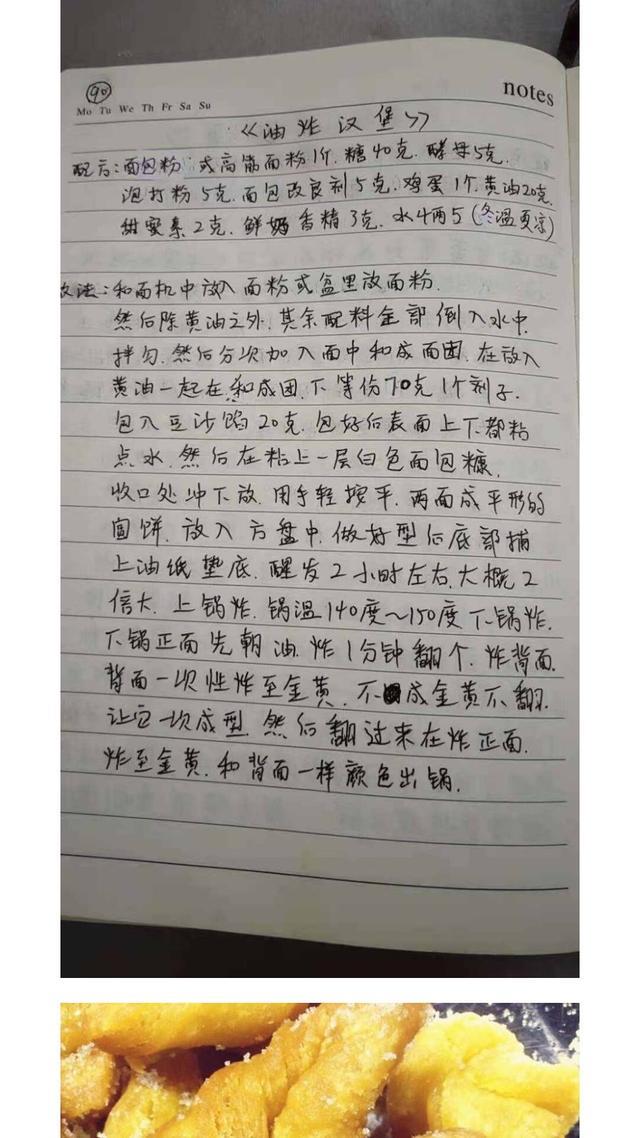 90
notes
Mo Tu We Th Fr Sa Su
《油炸汉堡》
配方:面包粉 或高筋面粉1斤.糖40克.酵母5克.
泡打粉5克.面包改良剂5克.鸡蛋1个.黄油20克.
甜蜜素2克.鲜奶香精3克.水4两5(冬温夏凉)
做法:和面机中放入面粉或盆里放面粉.
然后除黄油之外.其余配料全部倒入水中.
拌匀.然后分次加入面中和成面团.在放入
黄油一起在和成团.下等份70克1个剂子.
包入豆沙馅20克.包好后表面上下都粘
点水.然后在粘上一层白色面包糠.
收口处冲下放.用手轻按平.两面成平形的
圆饼.放入方盘中.做好型后底部捕
上油纸垫底.醒发2小时左右.大概2
倍大.上锅炸.锅温140度~150度下锅炸.
下锅正面先朝油.炸1分钟翻个.炸背面.
背面一次性炸至金黄.不成金黄不翻.
让它一次成型.然后翻过来在炸正面.
炸至金黄.和背面一样颜色出锅.